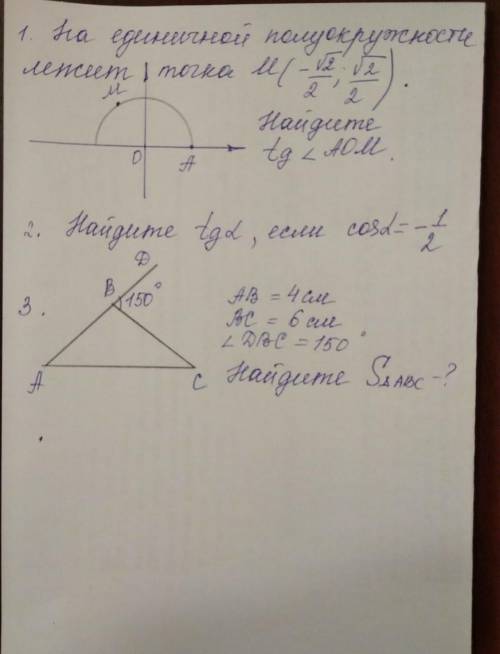 1. На единичной полуокружности
лежит точка M(-√2/2; √2/2).
M
O
A
Найдите
tg ∠AOM.
2. Найдите tgα, если cosα = -1/2
3.
D
B
150°
A
C
AB = 4 см
BC = 6 см
∠DBC = 150°
Найдите S△ABC - ?